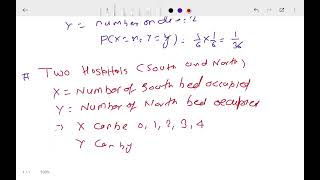 Y = number on die 2
P(X=x, Y=y) = 1/6 × 1/6 = 1/36
# Two Hospitals (South and North)
X = Number of South bed occupied
Y = Number of North bed occupied
⇒ X can be 0, 1, 2, 3, 4
Y can by